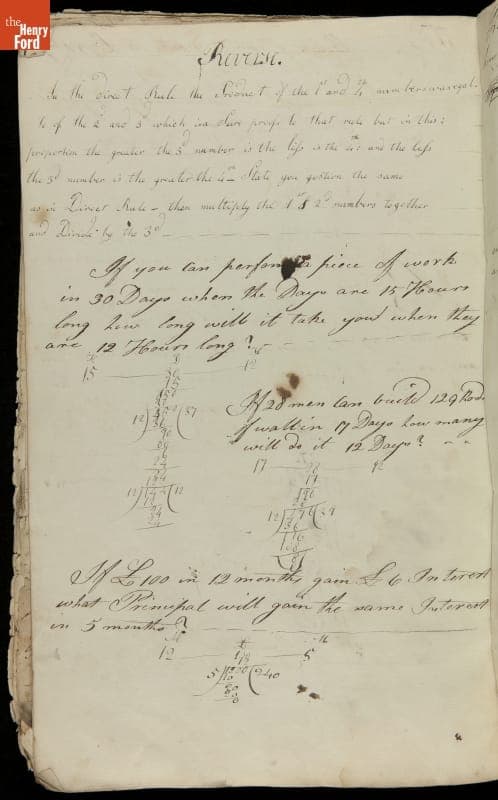 the Henry Ford
Reverse.
In the direct Rule the Product of the 1st and 4th numbers was egal
to of the 2d and 3 which is a Sure proof to that rule but in this
proportion the greater the 3d number is the less is the 4th and the less
the 3d number is the greater the 4th State you qustion the same
as in Direct Rule then multiply the 1st & 2d numbers together
and Divide by the 3d
If you can perform a piece of work
in 30 Days when the Days are 15 Hours
long how long will it take you when they
are 12 Hours long?
15 30 12
15
12 37
12 12
If 28 men can build 129 Rod
of wall in 17 Days how many
will do it 12 Days?
17 28 12
17
196
28
12 476 39
36
116
108
8
If £ 100 in 12 months gain £ 6 Interest
what Principal will gain the same Interest
in 5 months?
M £ M
12 5
5 240